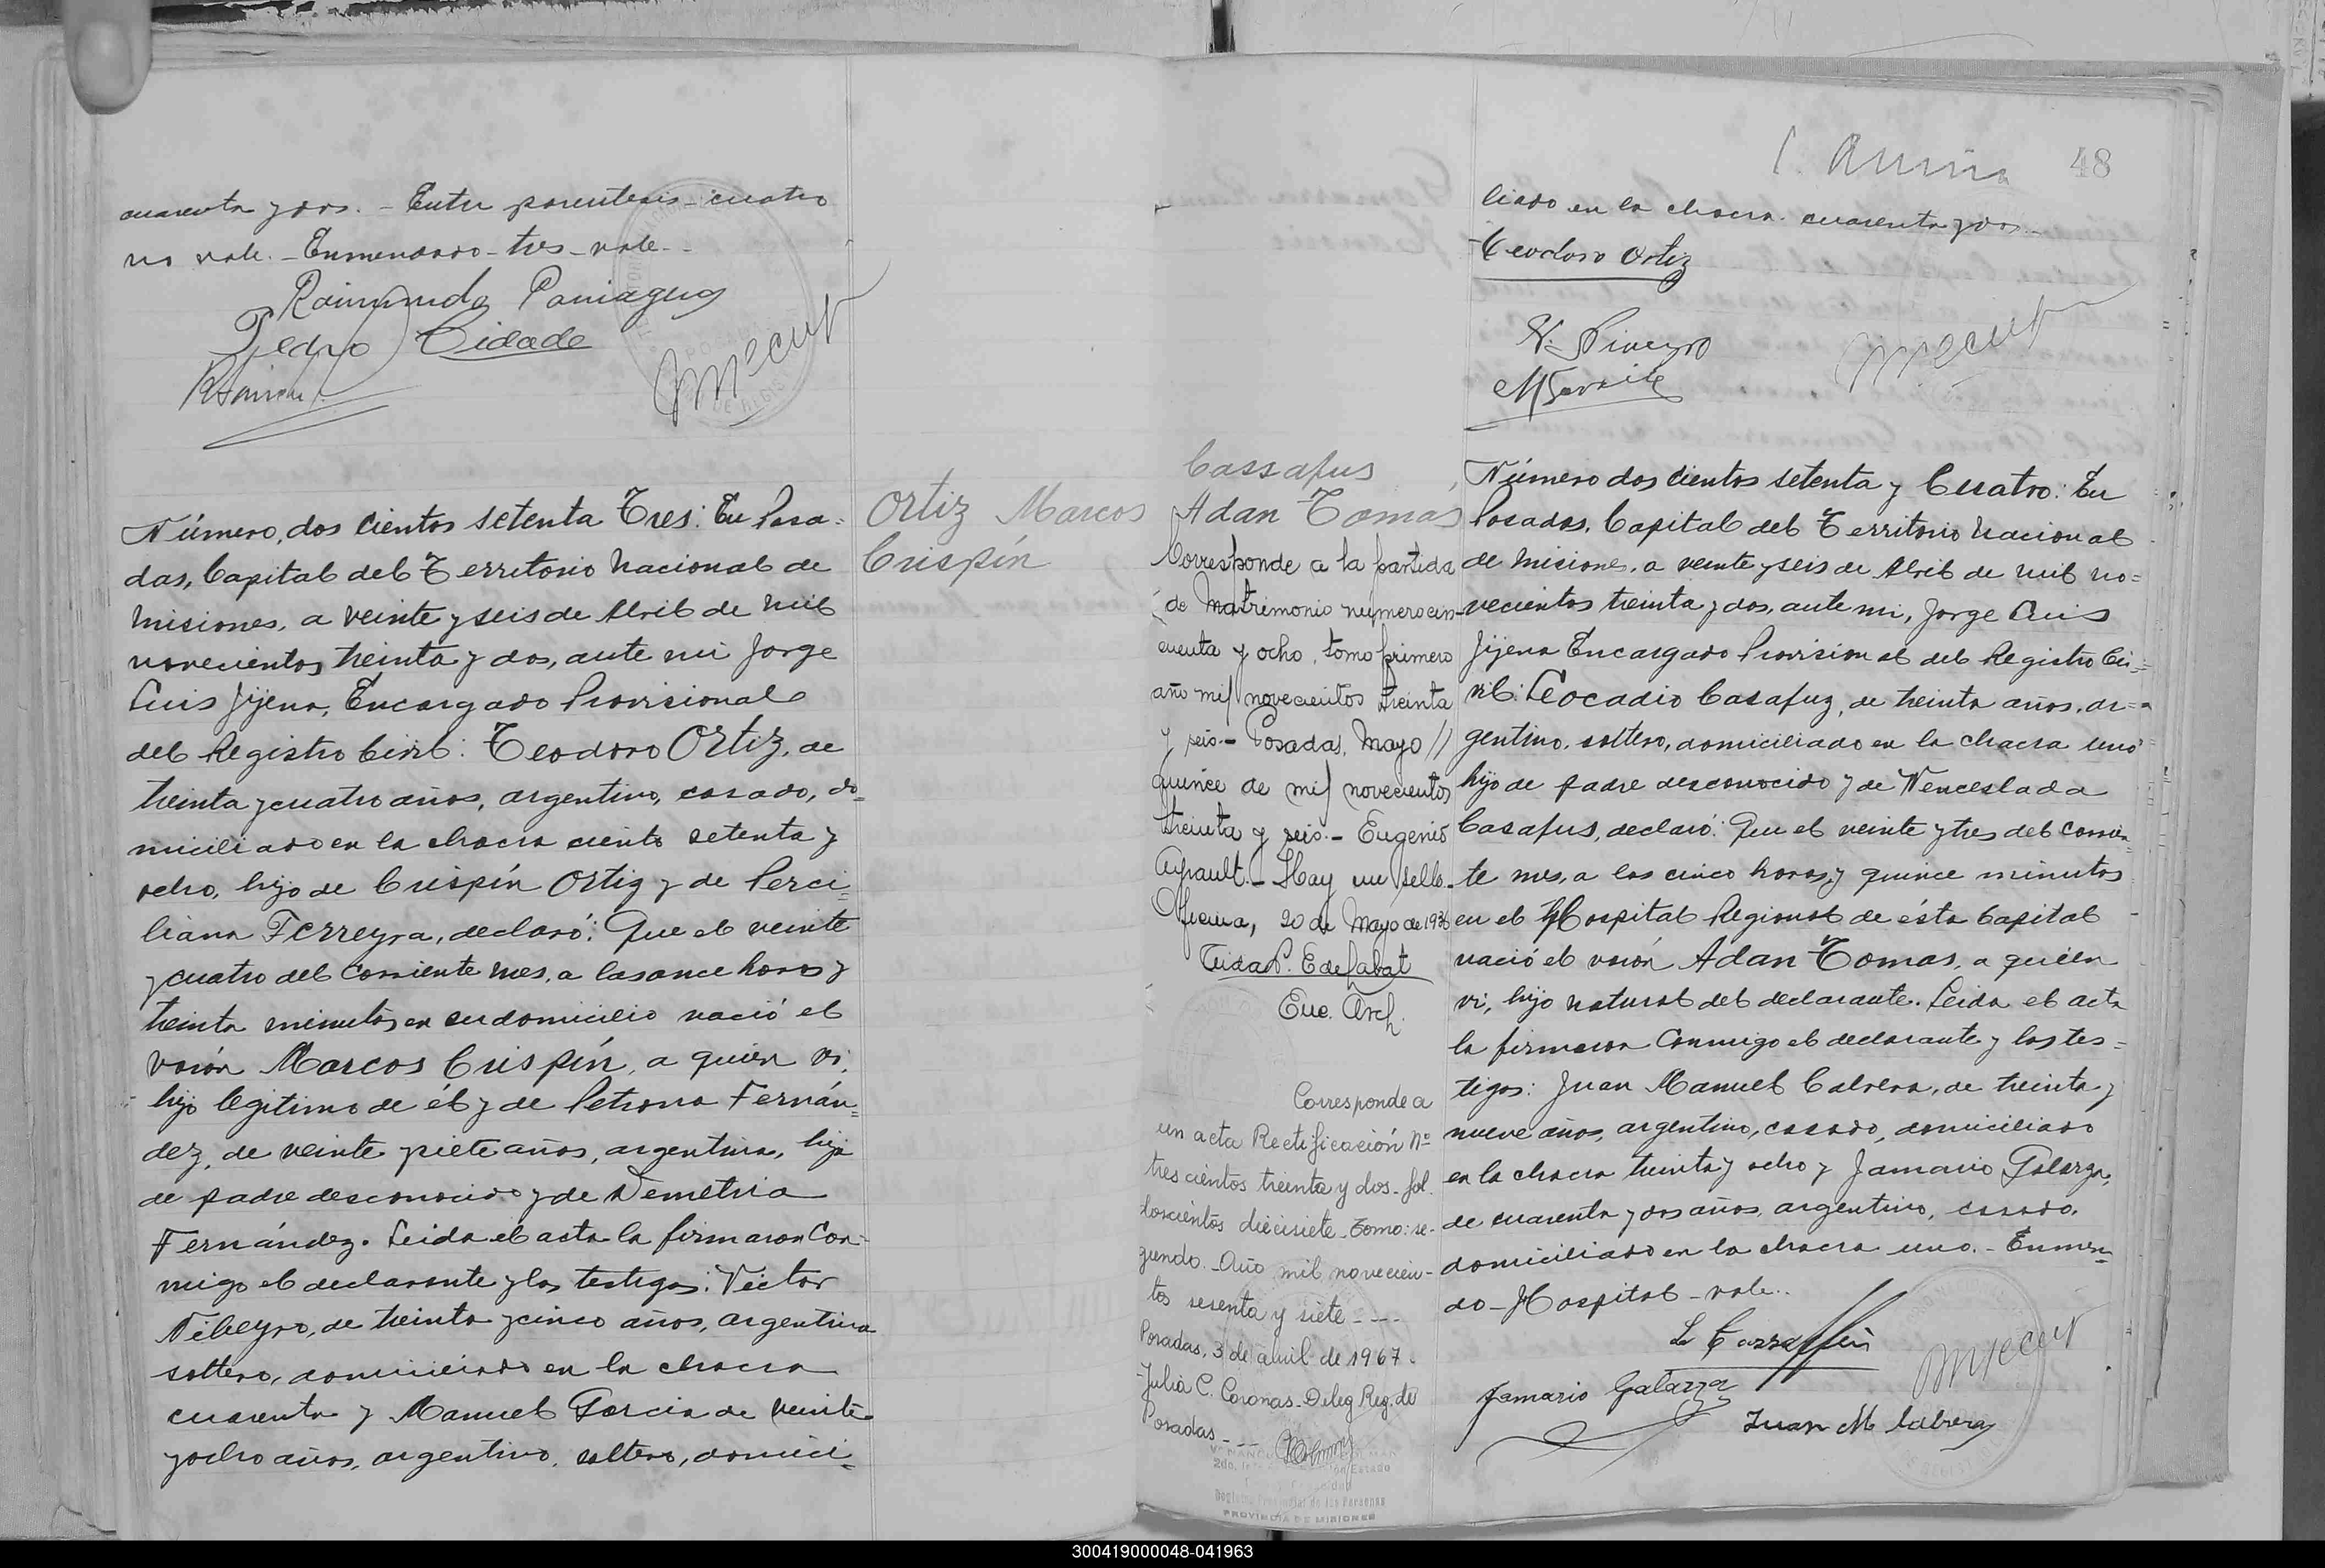 cuarenta y dos. - Entre parentesis - cuatro
no vale. - Enmendado - tres - vale. -
Raimundo Paniagua
Pedro Cidade
Número, dos cientos setenta Tres: En Posa=
das, Capital del Territorio Nacional de
Misiones, a veinte y seis de Abril de mil
novecientos treinta y dos, ante mi Jorge
Luis Jijena, Encargado Provisional
del Registro Civil: Teodoro Ortiz, de
treinta y cuatro años, argentino, casado, do=
miciliado en la chacra ciento setenta y
ocho, hijo de Crispín Ortiz y de Perci=
liana Ferreyra, declaró: Que el veinte
y cuatro del corriente mes, a las once horas y
treinta minutos en su domicilio nació el
varón Marcos Crispín, a quien vi,
hijo legitimo de él y de Petrona Fernán=
dez, de veinte y siete años, argentina, hija
de padre desconocido y de Demetria
Fernández. Leida el acta la firmaron con=
migo el declarante y los testigos: Victor
Niveyro, de treinta y cinco años, argentino
soltero, domiciliado en la chacra
cuarenta y Manuel Garcia de veinte
y ocho años, argentino, soltero, domici=
Ortiz Marcos
Crispín
48
liado en la chacra cuarenta y dos.
Teodoro Ortiz
V. Niveyro
Cassafus
Adan Tomas
Corresponde a la partida
de Matrimonio número cin-
cuenta y ocho, tomo primero
año mil novecientos treinta
y seis.- Posadas, Mayo //
quince de mil novecientos
treinta y seis.- Eugenio
Ayrault.- Hay un sello.-
Oficina, 20 de Mayo de 1936
Enc. Arch.
Corresponde a
un acta Rectificación Nº
trescientos treinta y dos - fol.
doscientos diecisiete - Tomo: se-
gundo. - Año mil novecien-
tos sesenta y siete - - -
Posadas, 3 de abril de 1967.
Julia C. Coronas - Deleg Reg. de
Posadas - - -
Registro Provincial de las Personas
PROVINCIA DE MISIONES
Número dos cientos setenta y Cuatro: En
Posadas, Capital del Territorio Nacional
de Misiones, a veinte y seis de Abril de mil no=
vecientos treinta y dos, ante mi, Jorge Luis
Jijena Encargado Provisional del Registro Ci=
vil: Leocadio Casafuz, de treinta años, ar=
gentino, soltero, domiciliado en la chacra uno
hijo de padre desconocido y de Wenceslada
Casafus, declaró: Que el veinte y tres del corrien=
te mes, a las cinco horas y quince minutos
en el Hospital Regional de ésta Capital
nació el varón Adan Tomas, a quien
vi, hijo natural del declarante. Leida el acta
la firmaron conmigo el declarante y los tes=
tigos: Juan Manuel Cabrera, de treinta y
nueve años, argentino, casado, domiciliado
en la chacra treinta y ocho y Jamario Galarza,
de cuarenta y dos años, argentino, casado,
domiciliado en la chacra uno. - Enmen=
do - Hospital - vale. -
Jamario Galarza
Juan M Cabrera
300419000048-041963